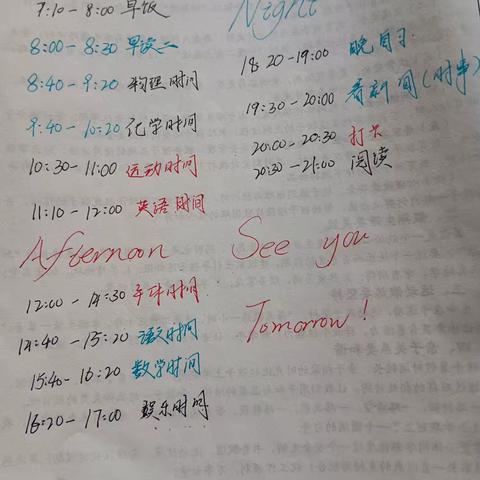 7:10 - 8:00 早饭
8:00 - 8:30 早读二
8:40 - 9:20 物理时间
9:40 - 10:20 化学时间
10:30 - 11:00 运动时间
11:10 - 12:00 英语时间
Afternoon
12:00 - 14:30 午休时间
14:40 - 15:20 语文时间
15:40 - 16:20 数学时间
16:20 - 17:00 娱乐时间
Night
18:20 - 19:00 晚自习
19:30 - 20:00 看新闻(时事)
20:00 - 20:30 打卡
20:30 - 21:00 阅读
See you
Tomorrow!